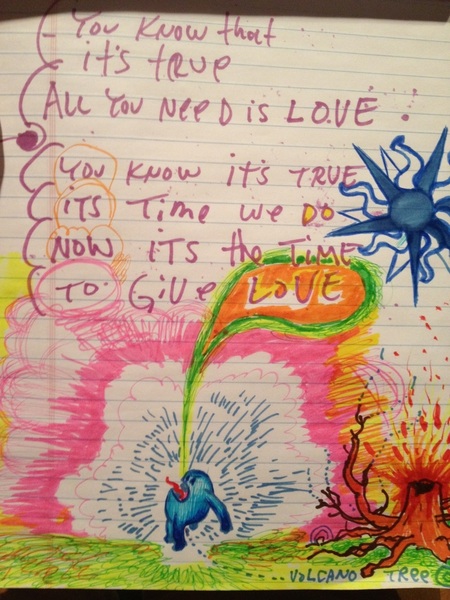 You know that
it's true
ALL YOU NEED is LOVE.
YOU KNOW it's TRUE
iTS Time we DO
NOW iTS the TIME
TO GiVe LOVE
VOLCANO TREE